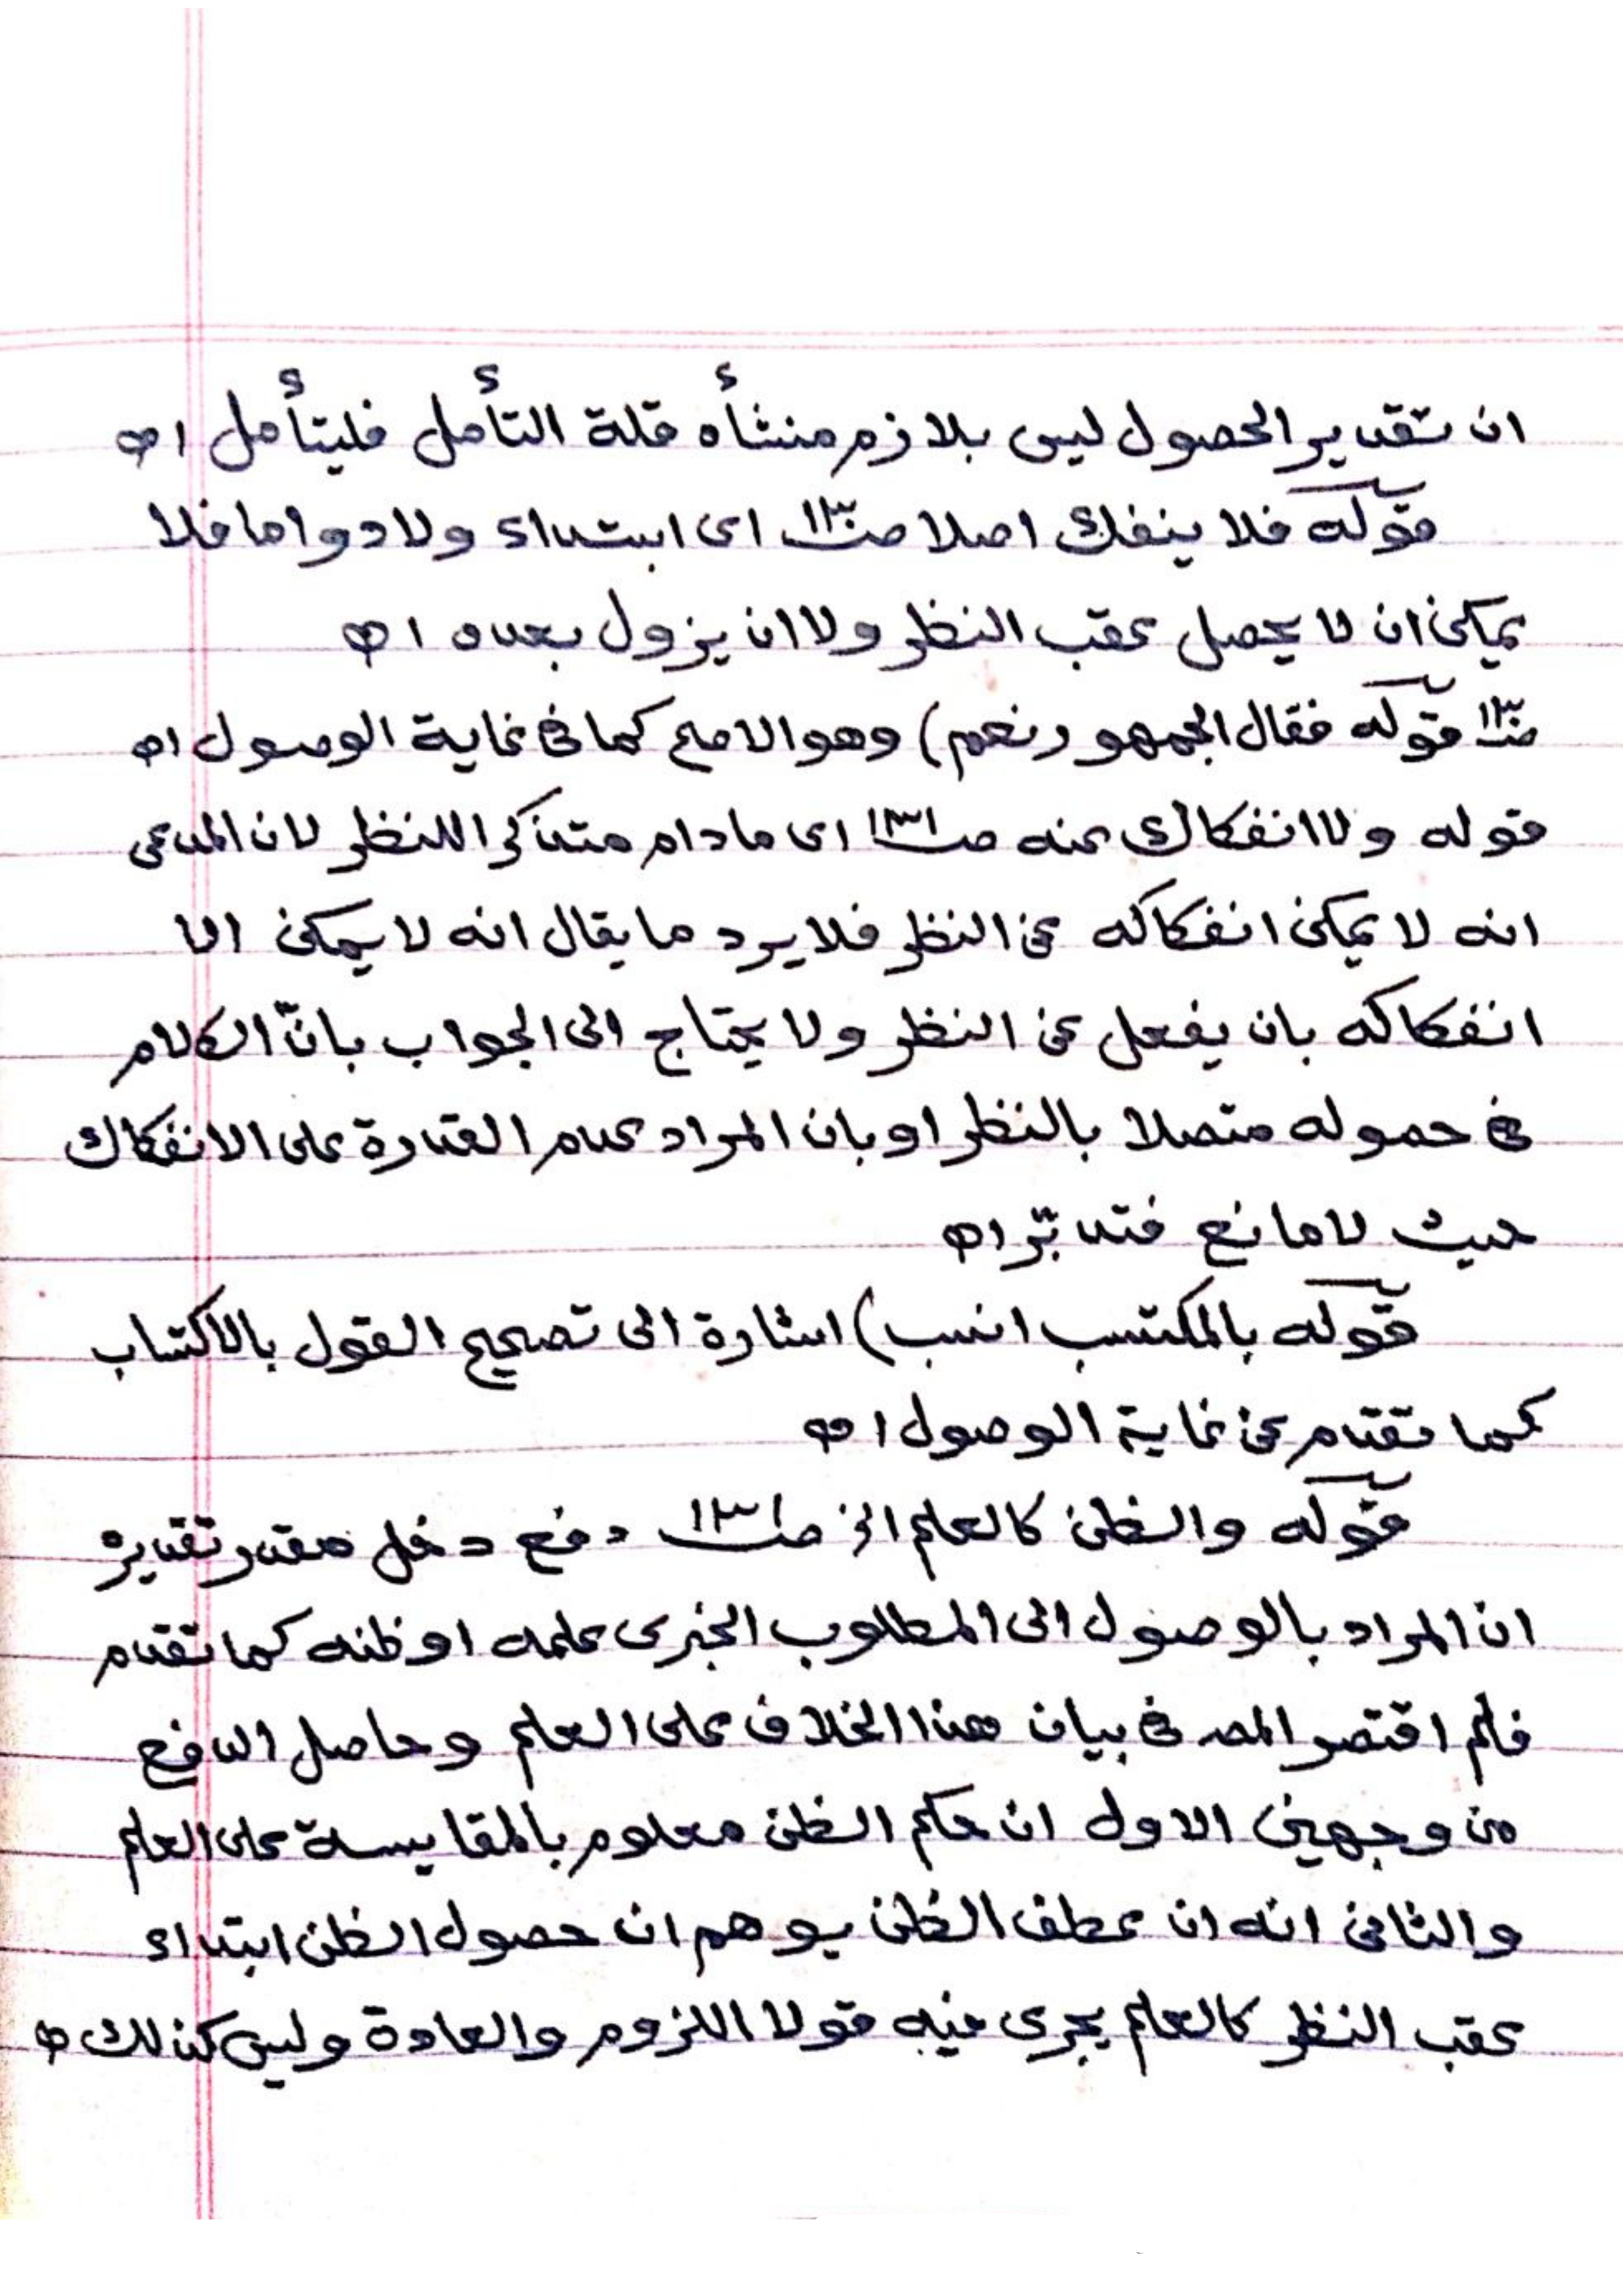 ان تقدير الحصول ليس بلازم منشأه قلة التأمل فليتأمل اه
قوله فلا ينفك اصلا صـ١٣٠ اى ابتداء ولا دواما فلا
يمكن ان لا يحصل عقب النظر ولا ان يزول بعده اه
صـ١٣٠ قوله فقال الجمهور نعم) وهو الاصح كما فى غاية الوصول اه
قوله ولا انفكاك عنه صـ١٣١ اى مادام متذكرا للنظر لان المدعى
انه لا يمكن انفكاكه عن النظر فلا يرد ما يقال انه لا يمكن الا
انفكاكه بان يفعل عن النظر ولا يحتاج الى الجواب بانّ الكلام
فى حصوله متصلا بالنظر او بان المراد عدم القدرة على الانفكاك
حيث لا مانع فتدبّر اه
قوله بالمكتسب انسب) اشارة الى تصحيح القول بالاكتساب
كما تقدم عن غاية الوصول اه
قوله والظن كالعلم الخ صـ١٣١ دفع دخل مقدر تقديره
ان المراد بالوصول الى المطلوب الخبرى علمه او ظنه كما تقدم
فلم اقتصر المصـ فى بيان هذا الخلاف على العلم وحاصل الدفع
من وجهين الاول ان حكم الظن معلوم بالمقايسة على العلم
والثانى انه ان عطف الظن يوهم ان حصول الظن ابتداء
عقب النظر كالعلم يجرى فيه قولا اللزوم والعادة وليس كذلك اه